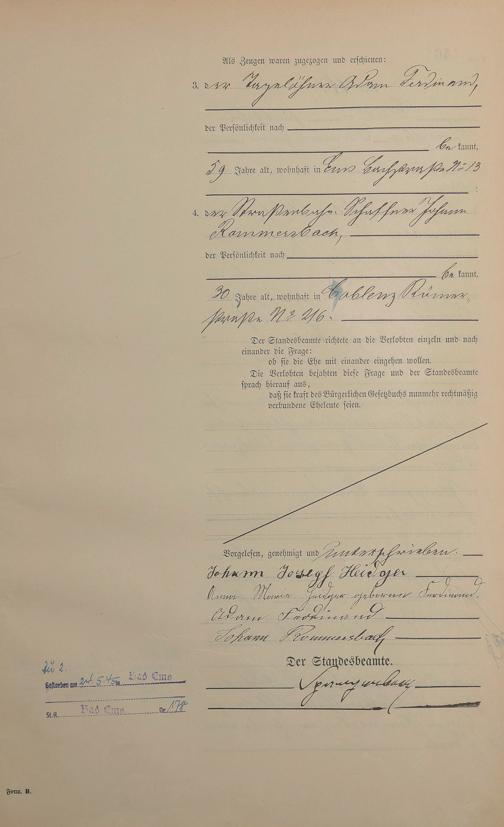 Als Zeugen waren zugezogen und erschienen:
3. der Tagelöhner Adam Ferdinand,
der Persönlichkeit nach
be kannt,
59 Jahre alt, wohnhaft in Ems Bachstraße No 13
4. der Straßenbahn-Schaffner Johann
Rommersbach,
der Persönlichkeit nach
be kannt,
30 Jahre alt, wohnhaft in Coblenz Römer-
straße No 216.
Der Standesbeamte richtete an die Verlobten einzeln und nach
einander die Frage:
ob sie die Ehe mit einander eingehen wollen.
Die Verlobten bejahten diese Frage und der Standesbeamte
sprach hierauf aus,
daß sie kraft des Bürgerlichen Gesetzbuchs nunmehr rechtmäßig
verbundene Eheleute seien.
Vorgelesen, genehmigt und unterschrieben.
Johann Josef Heidger
Anna Maria Heidger geborene Ferdinand.
Adam Ferdinand
Johann Rommersbach
Der Standesbeamte.
Zu 2.
Gestorben am 5.45 Bad Ems
St.A. Bad Ems Nr 178
Form. B.